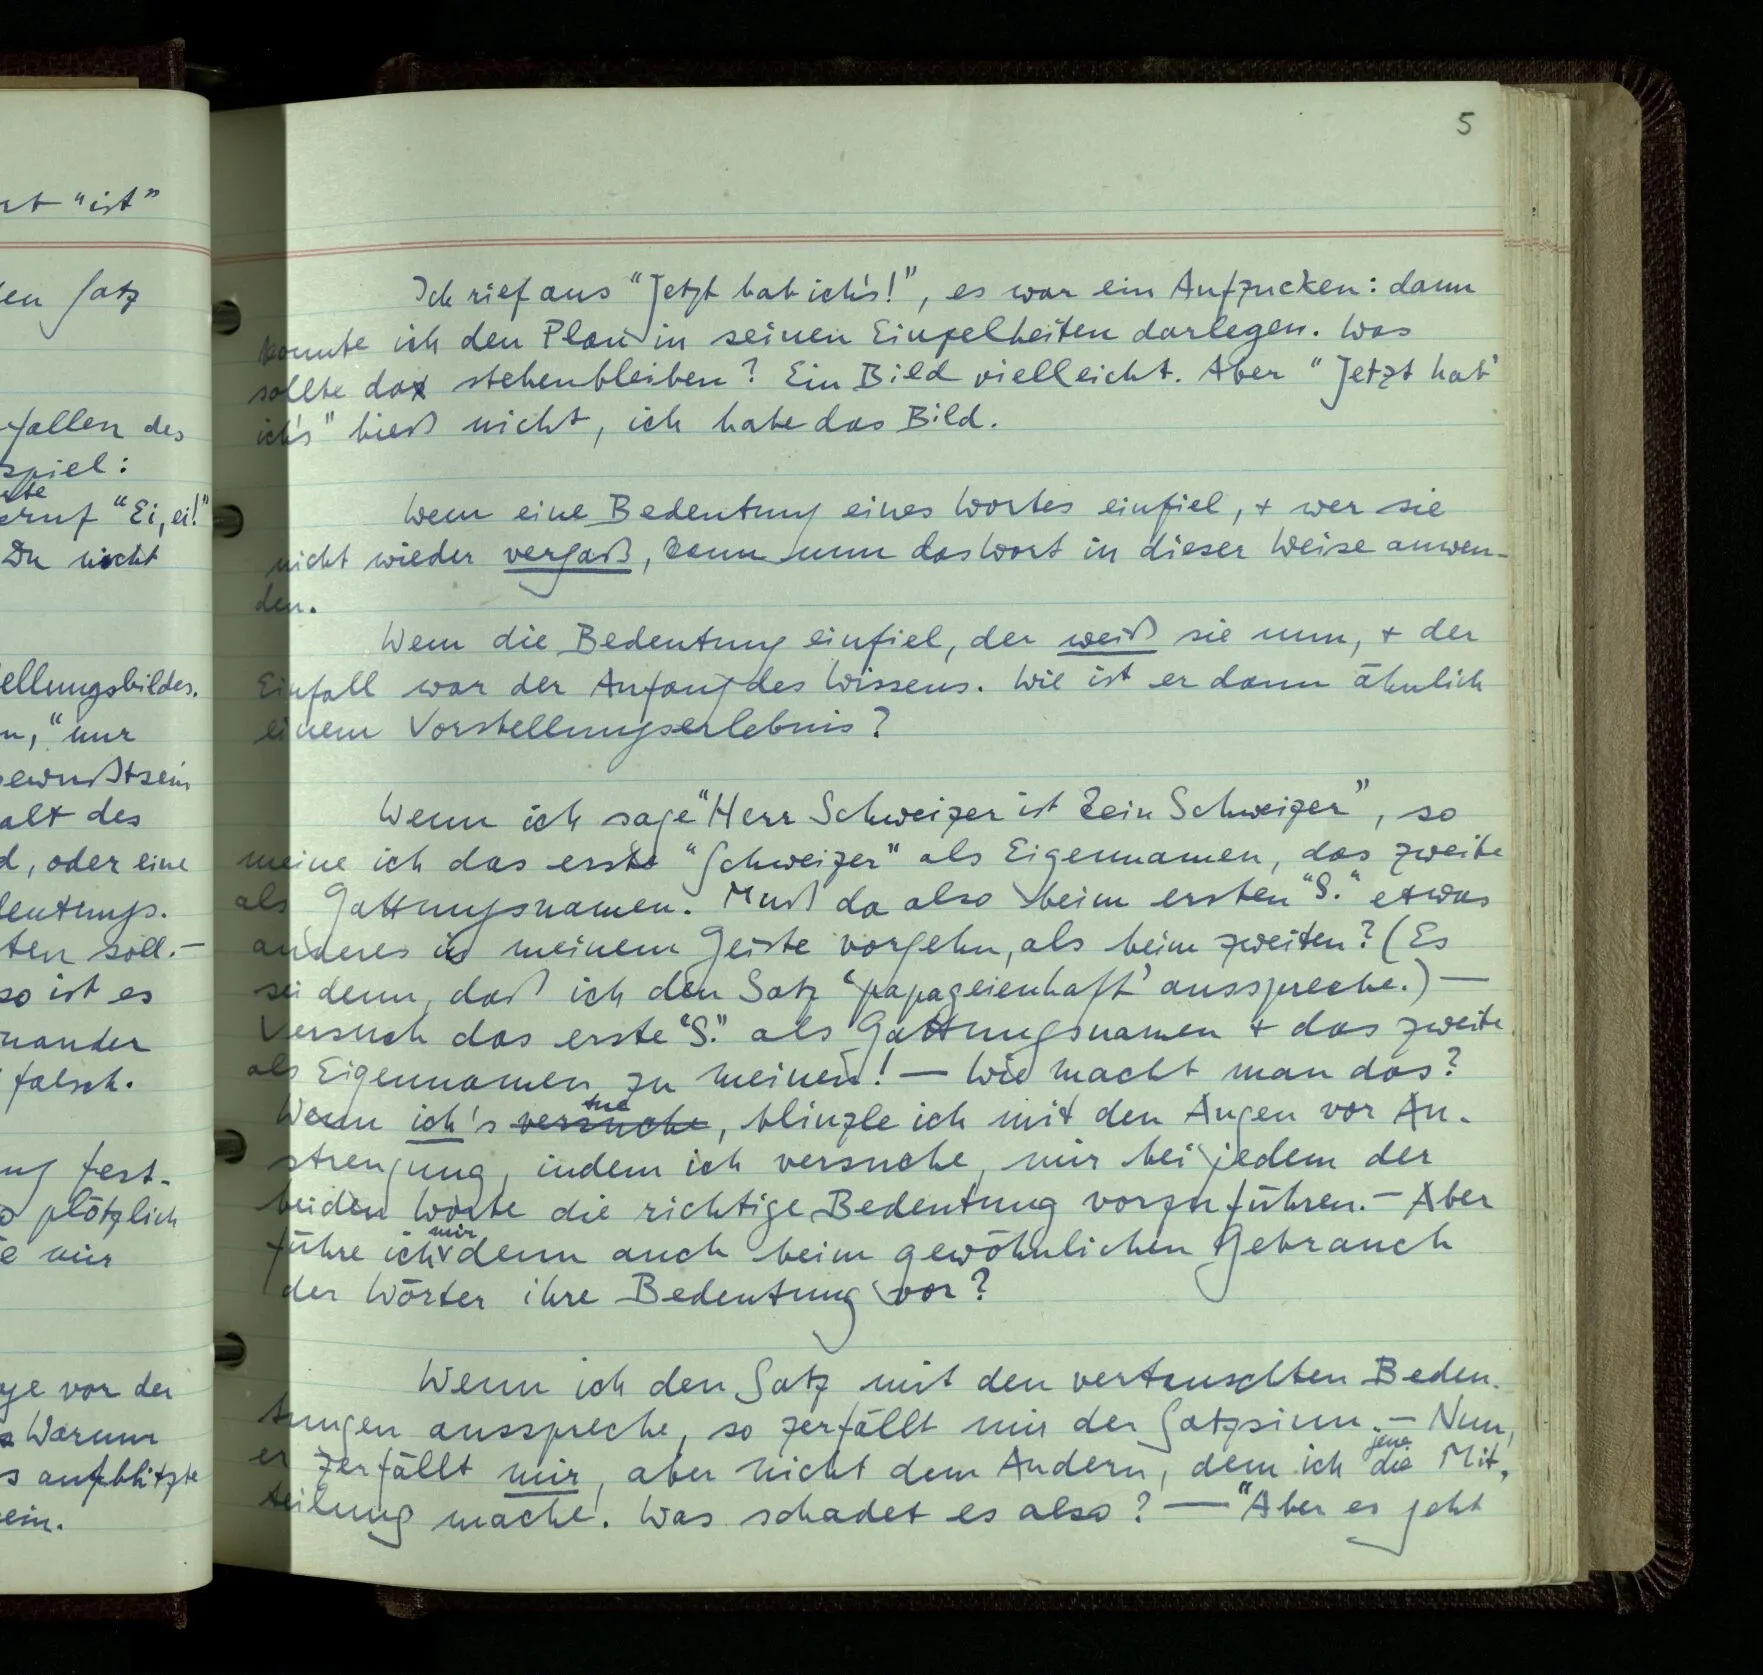 rt "ist"
en Satz
fallen des
spiel:
te
eruf "Ei, ei!"
Du nicht
ellungsbildes.
n," nur
ewußtsein
alt des
d, oder eine
deutungs.
ten soll.–
so ist es
nander
falsch.
ng fest-
plötzlich
e mir
ge vor der
Warum
s aufblitzte
ein.
5
Ich rief aus "Jetzt hab ich's!", es war ein Aufzucken: dann
konnte ich den Plan in seinen Einzelheiten darlegen. Was
sollte da stehenbleiben? Ein Bild vielleicht. Aber "Jetzt hab'
ich's" hieß nicht, ich habe das Bild.
Wem eine Bedeutung eines Wortes einfiel, + wer sie
nicht wieder vergaß, kann nun das Wort in dieser Weise anwen-
den.
Wem die Bedeutung einfiel, der weiß sie nun, + der
Einfall war der Anfang des Wissens. Wie ist er dann ähnlich
einem Vorstellungserlebnis?
Wenn ich sage "Herr Schweizer ist kein Schweizer", so
meine ich das erste "Schweizer" als Eigennamen, das zweite
als Gattungsnamen. Muß da also beim ersten "S." etwas
anderes in meinem Geiste vorgehn, als beim zweiten? (Es
sei denn, daß ich den Satz 'papageienhaft' ausspreche.) —
Versuch das erste "S." als Gattungsnamen + das zweite
als Eigennamen zu meinen! — Wie macht man das?
tue
Wenn ich's versuche, blinzle ich mit den Augen vor An-
strengung, indem ich versuche, mir bei jedem der
beiden Worte die richtige Bedeutung vorzuführen.– Aber
mir
führe ich denn auch beim gewöhnlichen Gebrauch
der Wörter ihre Bedeutung vor?
Wenn ich den Satz mit den vertauschten Bedeu-
tungen ausspreche, so zerfällt mir der Satzsinn.– Nun,
jene
er zerfällt mir, aber nicht dem Andern, dem ich die Mit-
teilung mache. Was schadet es also? — "Aber es geht